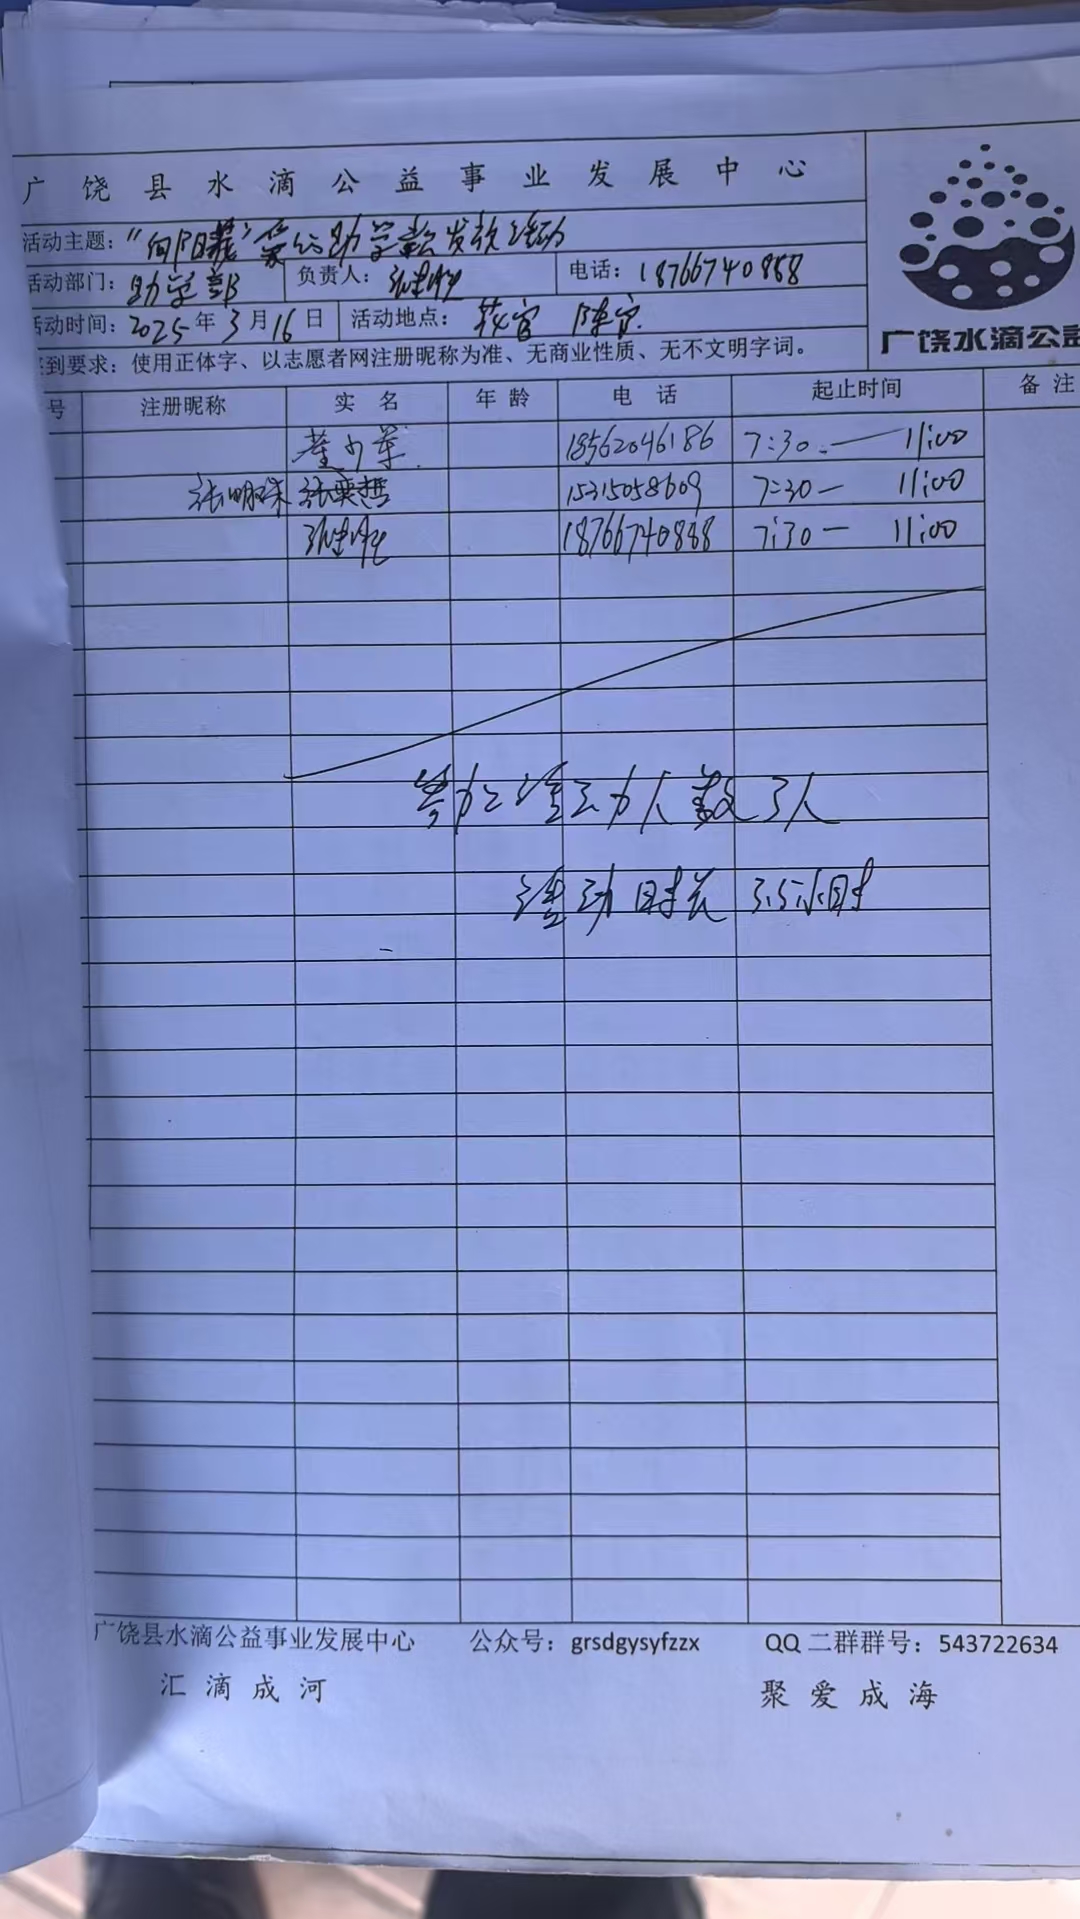 广饶县水滴公益事业发展中心
活动主题："向阳花"爱心助学款发放活动
活动部门：助学部 负责人： 电话：18766740888
活动时间：2025年3月16日 活动地点：
签到要求：使用正体字、以志愿者网注册昵称为准、无商业性质、无不文明字词。
广饶水滴公益
号 注册昵称 实名 年龄 电话 起止时间 备注
董少军 18562046186 7:30 — 11:00
张明珠 张奕哲 15315058609 7:30 — 11:00
18766740888 7:30 — 11:00
参加活动人数3人
活动时长3.5小时
广饶县水滴公益事业发展中心 公众号：grsdgysyfzzx QQ二群群号：543722634
汇滴成河 聚爱成海